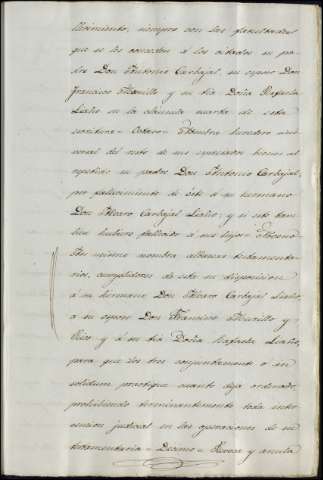 llecimiento, siempre con las facultades
que se les conceden á los citados su pa-
dre Don Antonio Carbajal, su esposo Don
Francisco Murillo y su tia Doña Rafaela
Liaño en la cláusula cuarta de esta
escritura = Octavo = Nombra heredero uni-
versal del resto de sus expresados bienes al
repetido su padre Don Antonio Carbajal,
por fallecimiento de éste á su hermano
Don Alvaro Carbajal Liaño, y si este tam-
bien hubiere fallecido á sus hijos = Noveno =
Asi mismo nombra albaceas testamenta-
rios, cumplidores de esta su disposicion
á su hermano Don Alvaro Carbajal Liaño,
á su esposo Don Francisco Murillo y
Rico y á su tia Doña Rafaela Liaño,
para que los tres conjuntamente ó in
solidum practiquen cuanto deja ordenado,
prohibiendo terminantemente toda inter-
vencion judicial en las operaciones de su
testamentaria = Decimo = Revoca y anula